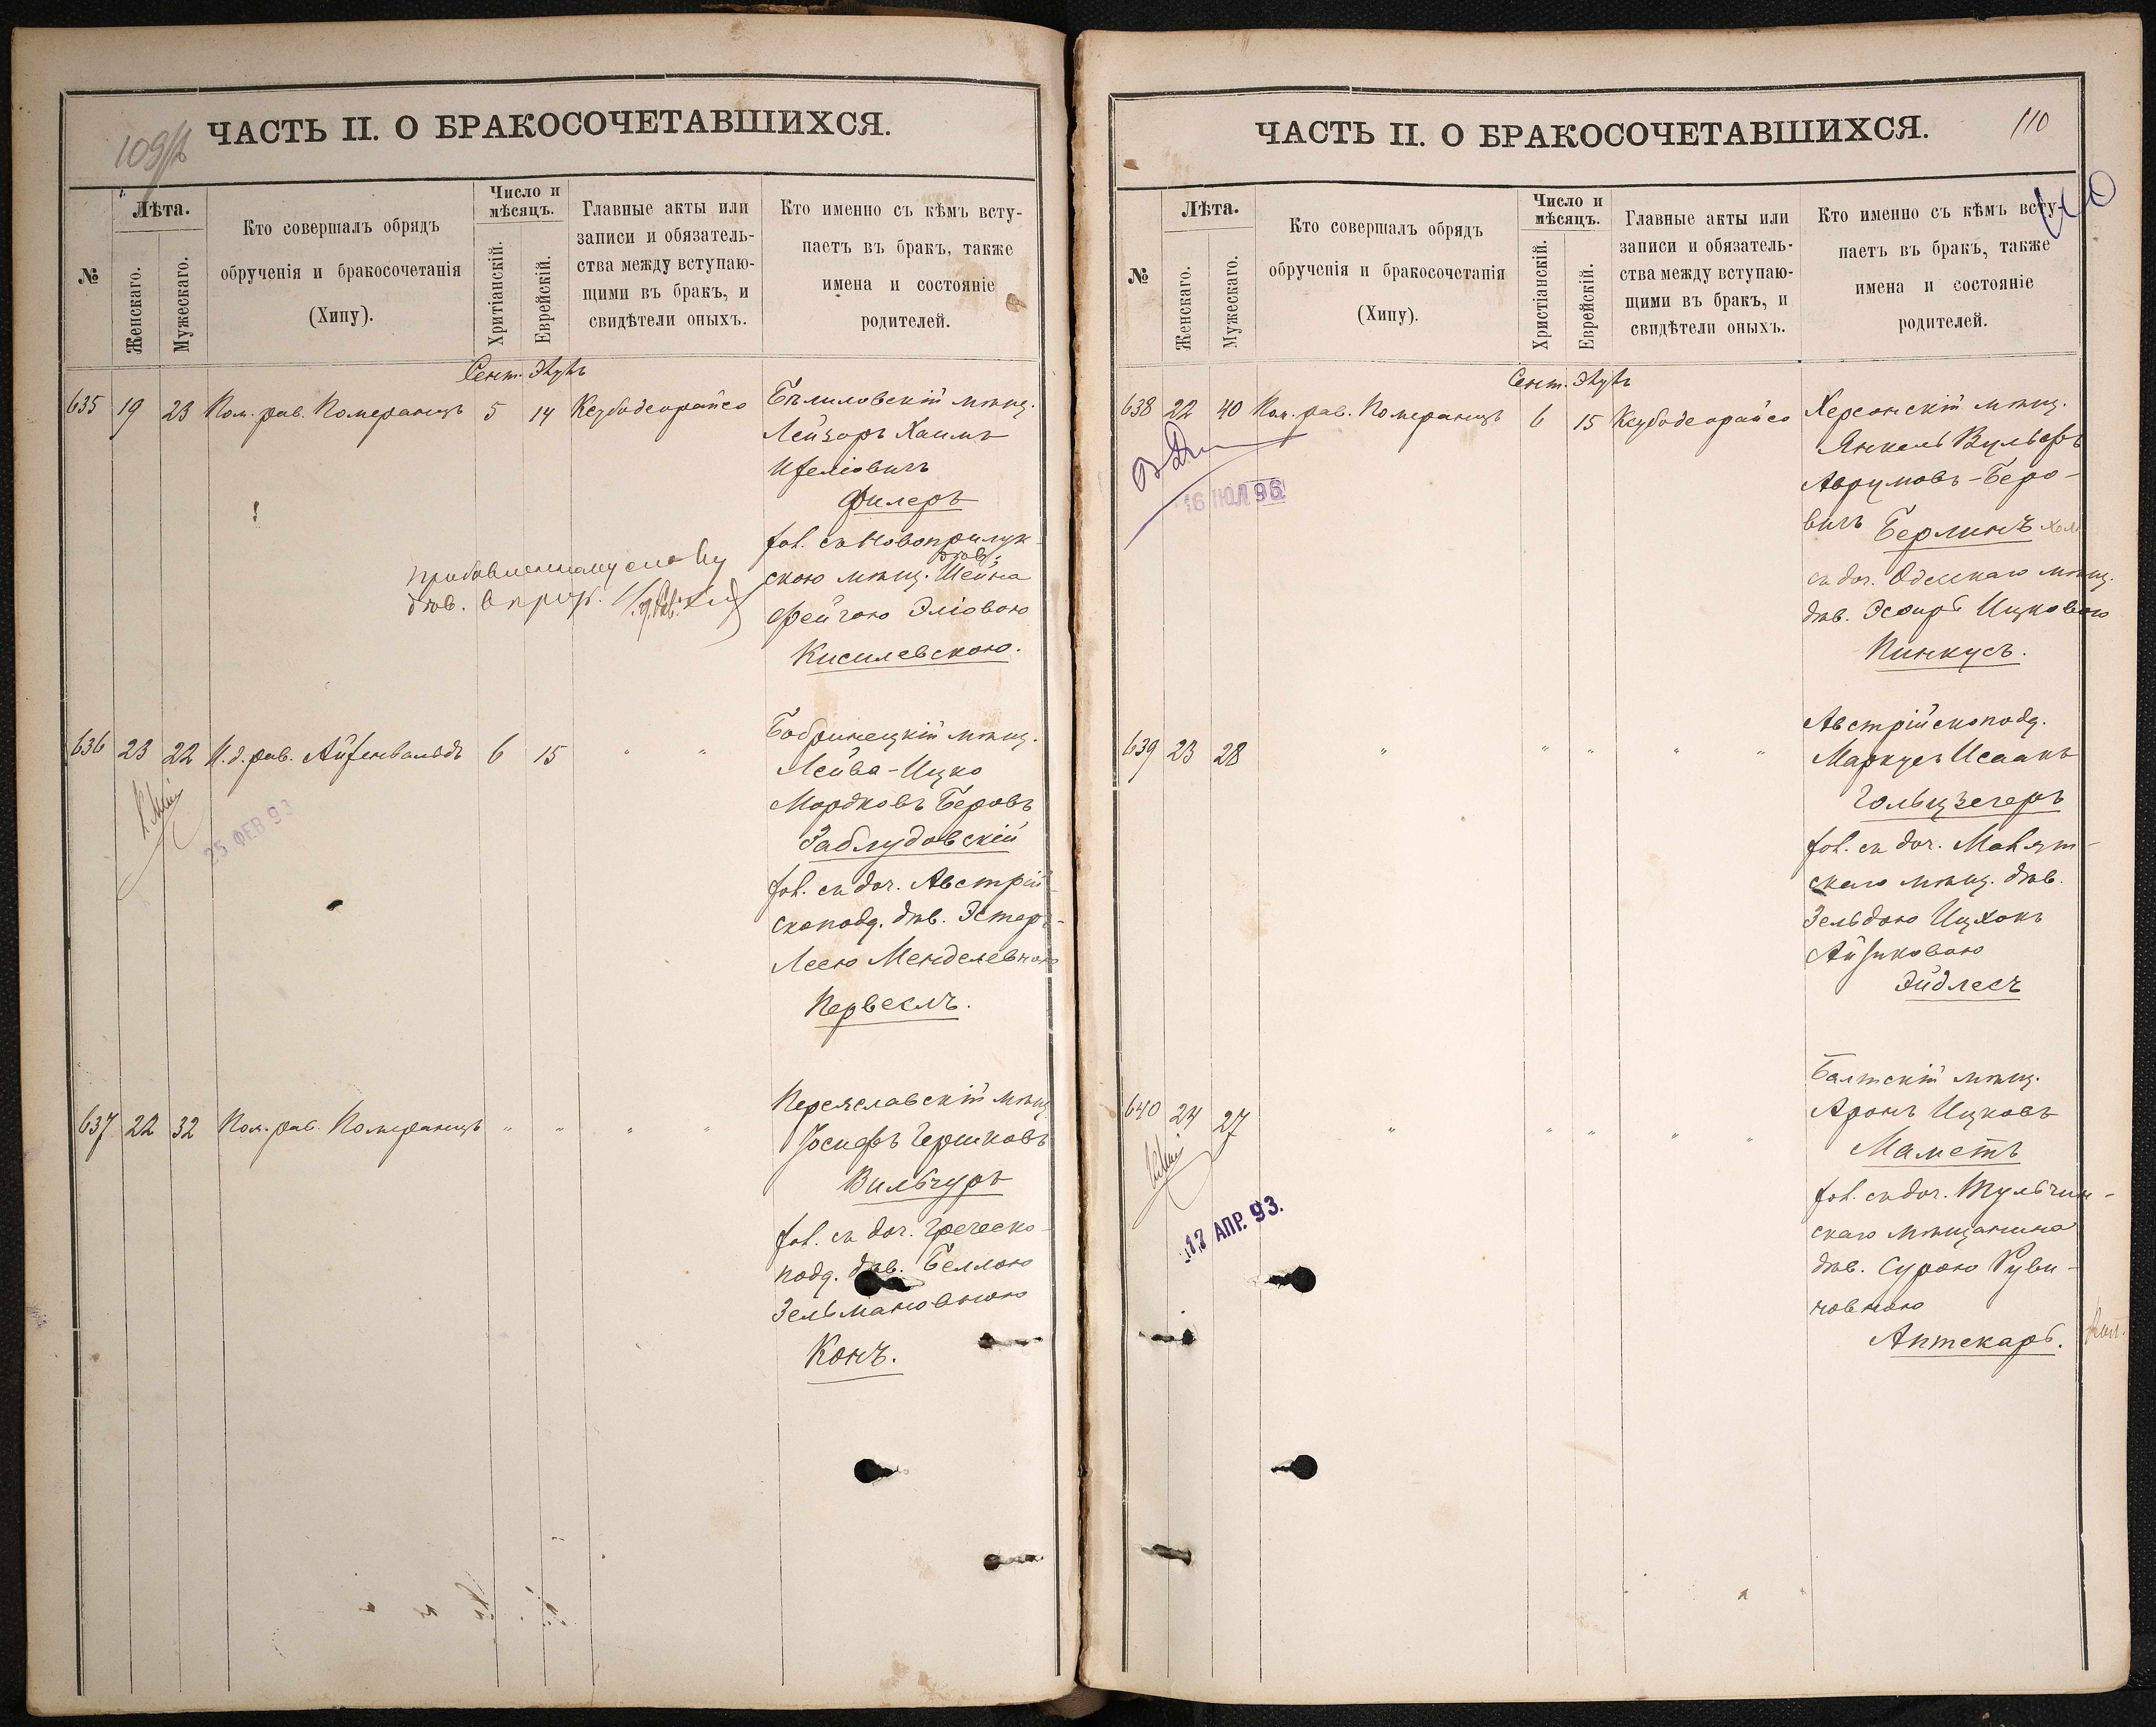 109/б
ЧАСТЬ II. О БРАКОСОЧЕТАВШИХСЯ.
№
Лѣта.
Женскаго.
Мужескаго.
Кто совершалъ обрядъ
обрученія и бракосочетанія
(Хипу).
Число и
мѣсяцъ.
Хритіанскій.
Еврейскій.
Главные акты или
записи и обязатель-
ства между вступаю-
щими въ бракъ, и
свидѣтели оныхъ.
Кто именно съ кѣмъ всту-
паетъ въ бракъ, также
имена и состояніе
родителей.
Сент. Элулъ
635 19 23 Пом. рав. Померанцъ 5 14 Ксубодеорайсо
Бѣлиловскій мѣщ.
Лейзоръ Хаимъ
Изеліовичъ
Филеръ
хол. съ Новоприлук-
дѣв.
скою мѣщ. Шейна
Фейгою Эліовою
Кисилевскою.
прибавленному слову
дѣв. вѣрить.
636 23 22 И. д. рав. Айзенвальдъ 6 15 " "
25 ФЕВ 93
Бобринецкій мѣщ.
Лейва-Ицко
Мордковъ Беровъ
Заблудовскій
хол. съ доч. Австрій-
скоподд. дѣв. Эстеръ-
Леею Менделевною
Первеслъ.
637 22 32 Пом. рав. Померанцъ " " " "
Переяславскій мѣщ.
Іосифъ Гершковъ
Вильчуръ
хол. съ доч. Греческо-
подд. дѣв. Беллою
Зельмановною
Конъ.
ЧАСТЬ II. О БРАКОСОЧЕТАВШИХСЯ.
110
110
№
Лѣта.
Женскаго.
Мужескаго.
Кто совершалъ обрядъ
обрученія и бракосочетанія
(Хипу).
Число и
мѣсяцъ.
Христіанскій.
Еврейскій.
Главные акты или
записи и обязатель-
ства между вступаю-
щими въ бракъ, и
свидѣтели оныхъ.
Кто именно съ кѣмъ всту-
паетъ въ бракъ, также
имена и состояніе
родителей.
Сент. Элулъ
638 22 40 Пом. рав. Померанцъ 6 15 Ксубодеорайсо
16 ІЮЛ 96
Херсонскій мѣщ.
Янкель Вульфъ
Аврумовъ-Беро-
вичъ Берлинъ хол.
съ доч. Одесскаго мѣщ.
дѣв. Эсѳирь Ицковою
Пинкусъ.
639 23 28 " " " " "
Австрійскоподд.
Маркусъ Исаакъ
Гольцзегеръ
хол. съ доч. Маяк-
скаго мѣщ. дѣв.
Зельдою Ицхокъ
Айзиковою
Эйдлесъ
640 24 27 " " " " "
17 АПР. 93.
Балтскій мѣщ.
Аронъ Ицковъ
Маметъ
хол. съ доч. Тульчин-
скаго мѣщанина
дѣв. Сурою Руви-
новною
Аптекарь.